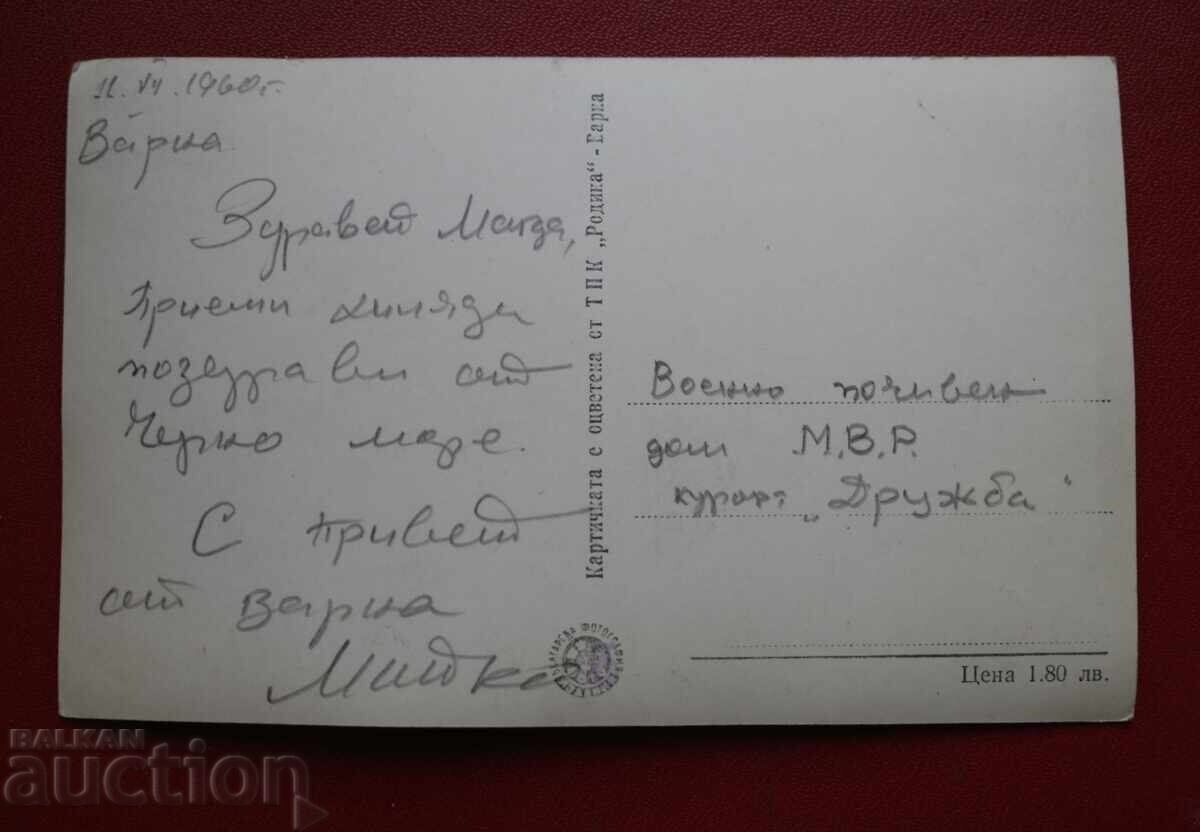 11. VII. 1960 г.
Варна
Здравей Магда,
Приеми хиляди
поздрави от
Черно море.
С привет
от Варна
Митко
Картичката е оцветена от ТПК „Родина" - Варна
БЪЛГАРСКА ФОТОГРАФИЯ
Военно почивен
дом М.В.Р.
курорт „Дружба"
Цена 1.80 лв.
BALKAN
auction